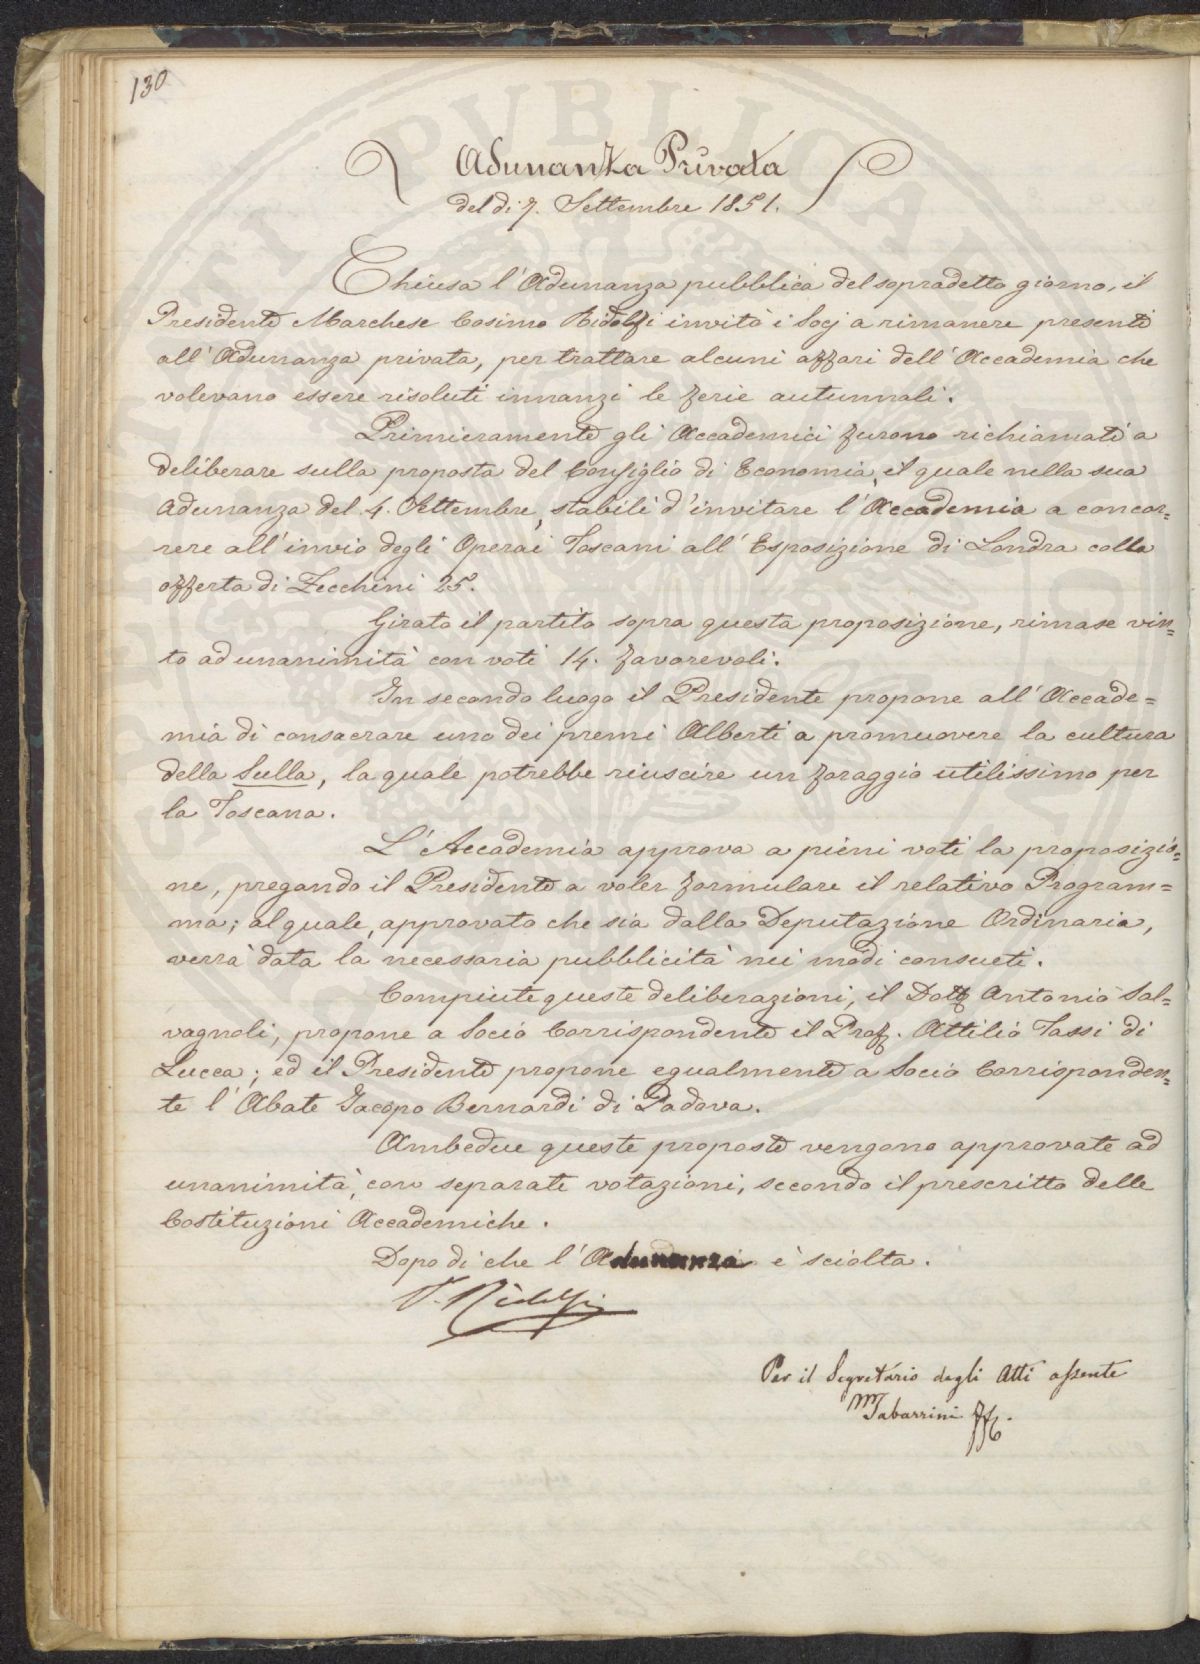 130
Adunanza Privata
del dì 7. Settembre 1851.
Chiusa l'Adunanza pubblica del sopradetto giorno, il
Presidente Marchese Cosimo Ridolfi invitò i Socj a rimanere presenti
all'Adunanza privata, per trattare alcuni affari dell'Accademia che
volevano essere risoluti innanzi le ferie autunnali.
Primieramente gli Accademici furono richiamati a
deliberare sulla proposta del Consiglio di Economia, il quale nella sua
adunanza del 4. Settembre, stabilì d'invitare l'Accademia a concor=
rere all'invio degli Operai Toscani all'Esposizione di Londra colla
offerta di Zecchini 25.
Girato il partito sopra questa proposizione, rimase vin=
to ad unanimità con voti 14. favorevoli.
In secondo luogo il Presidente propone all'Accade=
mia di consacrare uno dei premi Alberti a promuovere la cultura
della Sulla, la quale potrebbe riuscire un foraggio utilissimo per
la Toscana.
L'Accademia approva a pieni voti la proposizio=
ne, pregando il Presidente a voler formulare il relativo Program=
ma; al quale, approvato che sia dalla Deputazione Ordinaria,
verrà data la necessaria pubblicità nei modi consueti.
Compiute queste deliberazioni, il Dott Antonio Sal=
vagnoli, propone a Socio Corrispondente il Prof. Attilio Tassi di
Lucca; ed il Presidente propone egualmente a Socio Corrisponden=
te l'Abate Jacopo Bernardi di Padova.
Ambedue queste proposte vengono approvate ad
unanimità, con separate votazioni, secondo il prescritto delle
Costituzioni Accademiche.
Dopo di che l'Adunanza è sciolta.
Ridolfi
Per il Segretario degli Atti assente
M Tabarrini ff.